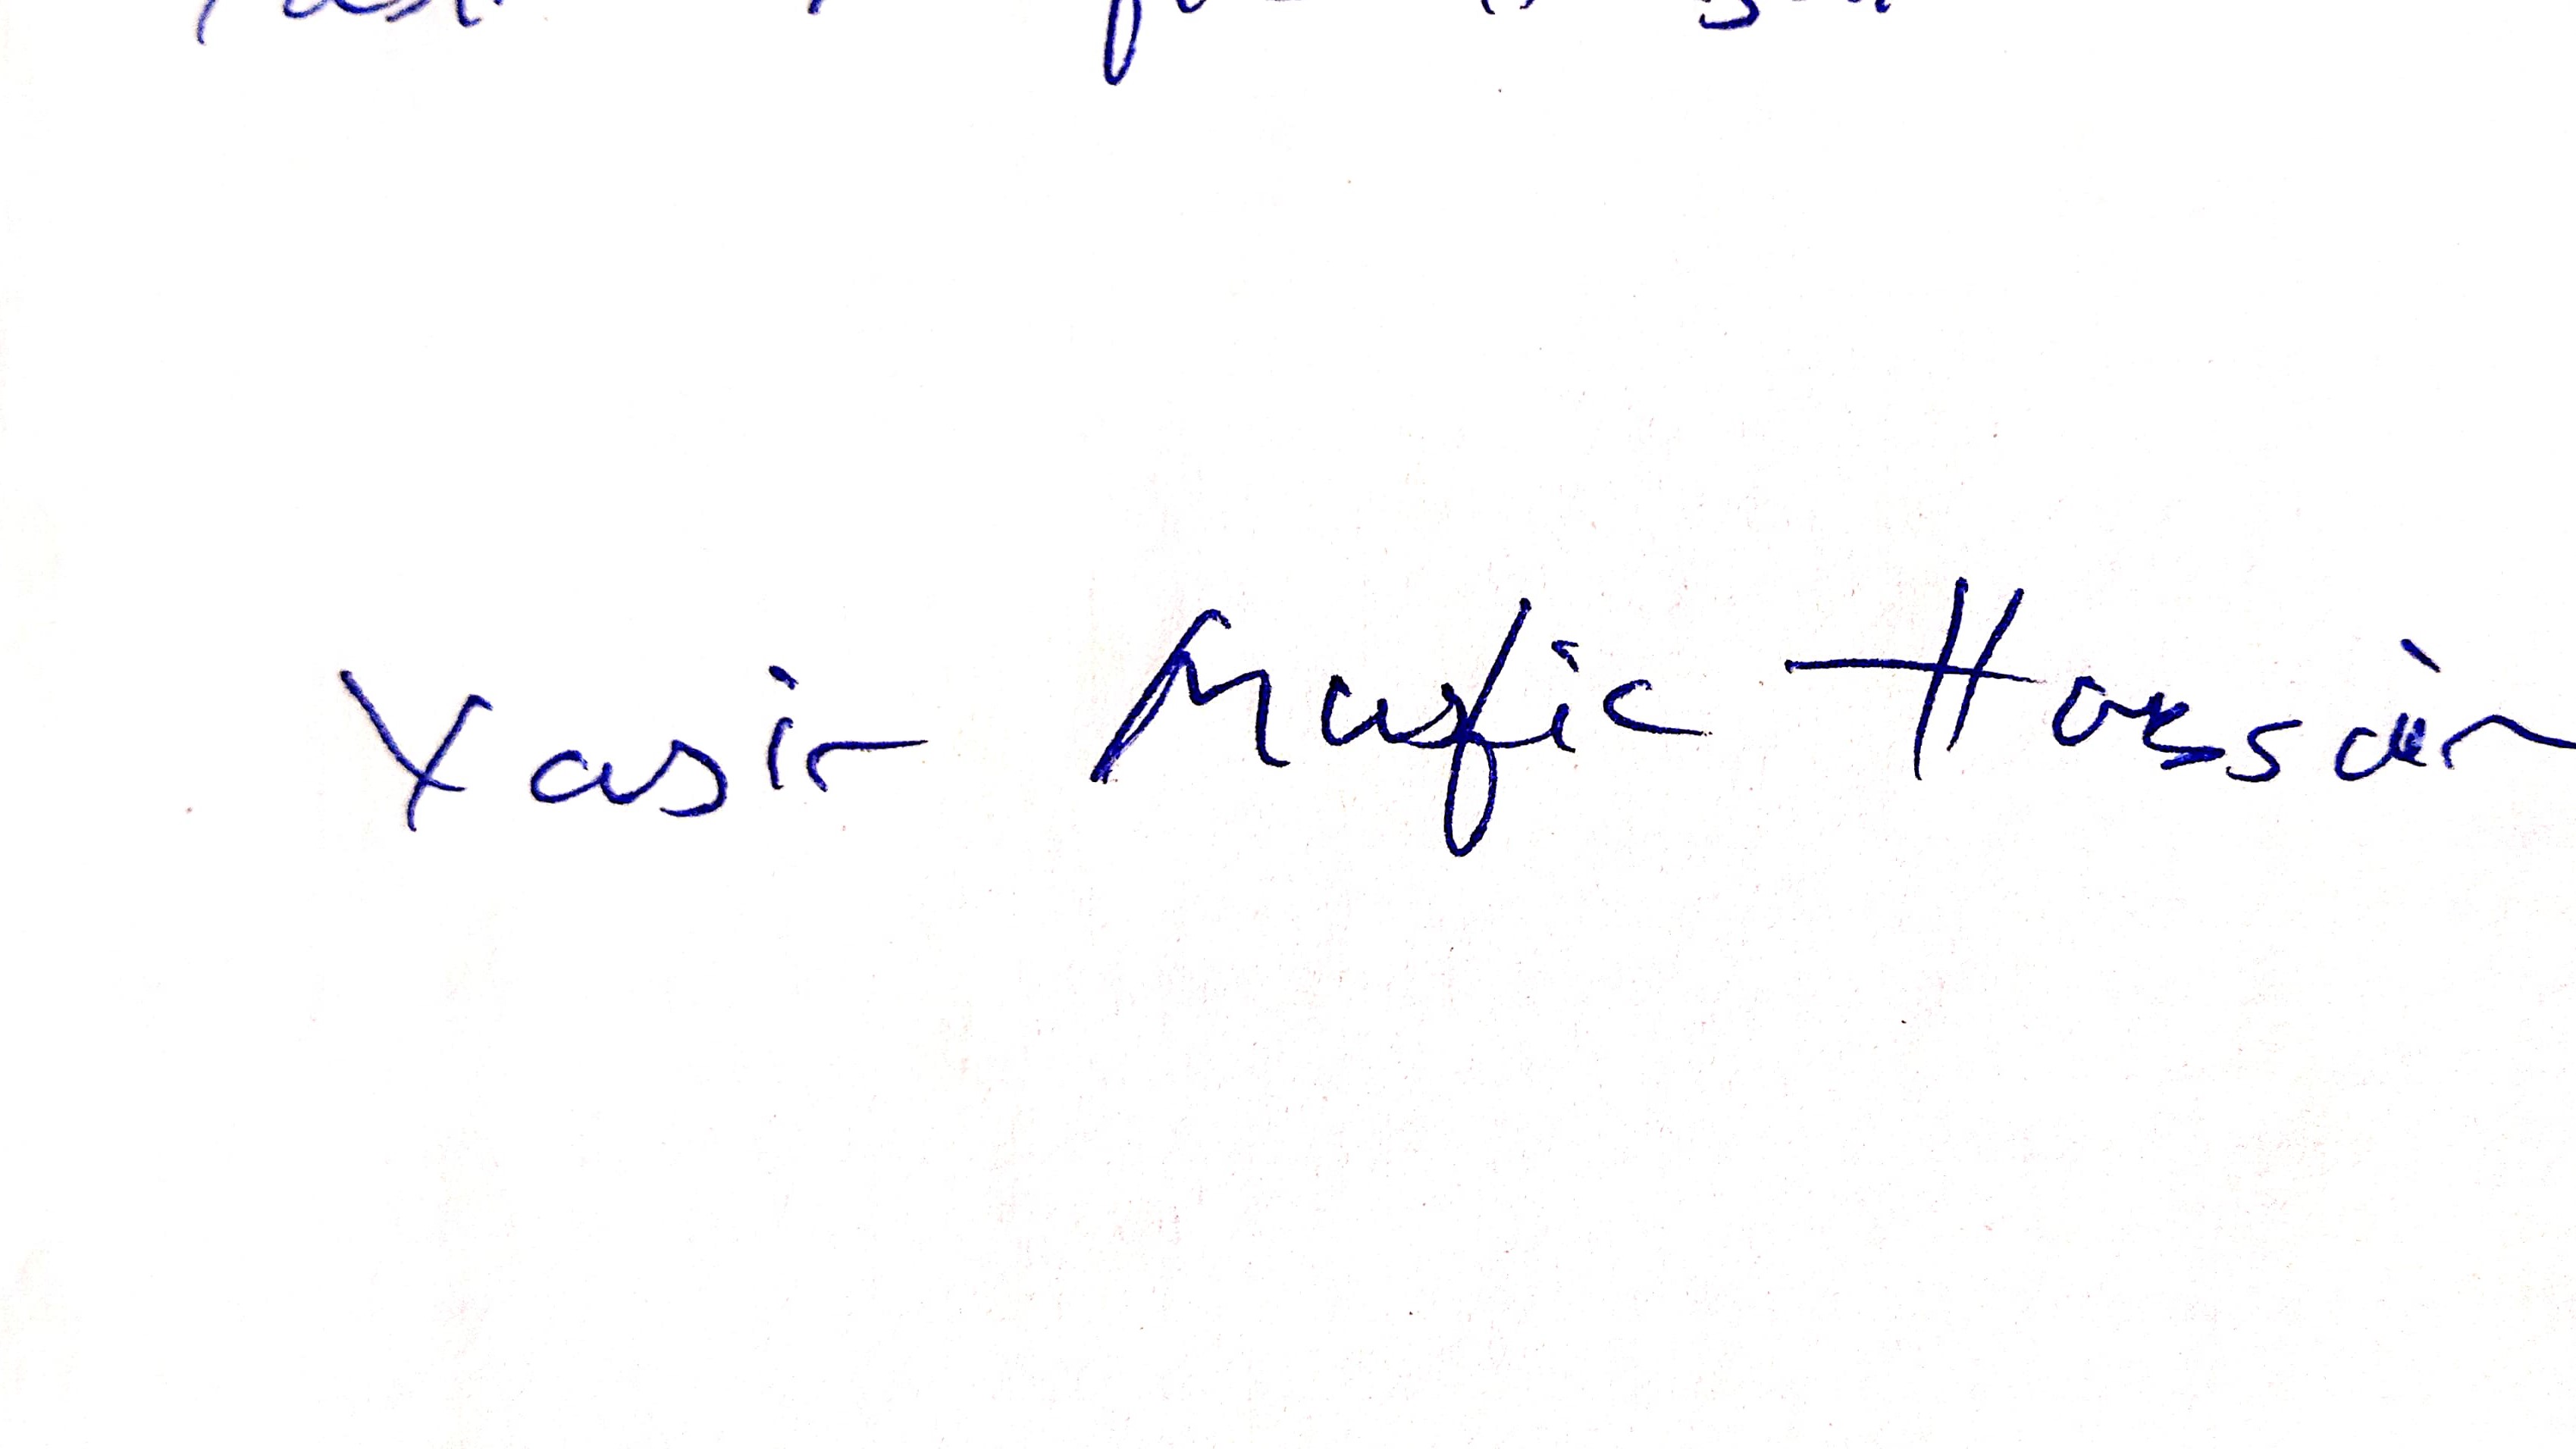 Yasir Masfic Hossain